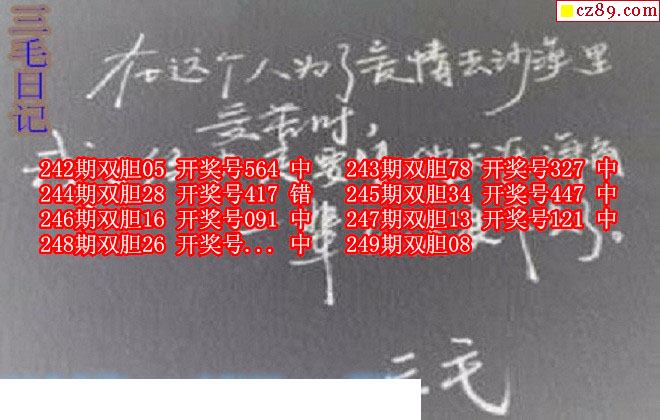 三毛日记
cz89.com
在这个人为了爱情去沙漠里
受苦时,
242期双胆05 开奖号564 中 243期双胆78 开奖号327 中
244期双胆28 开奖号417 错 245期双胆34 开奖号447 中
246期双胆16 开奖号091 中 247期双胆13 开奖号121 中
248期双胆26 开奖号... 中 249期双胆08
一辈
三毛